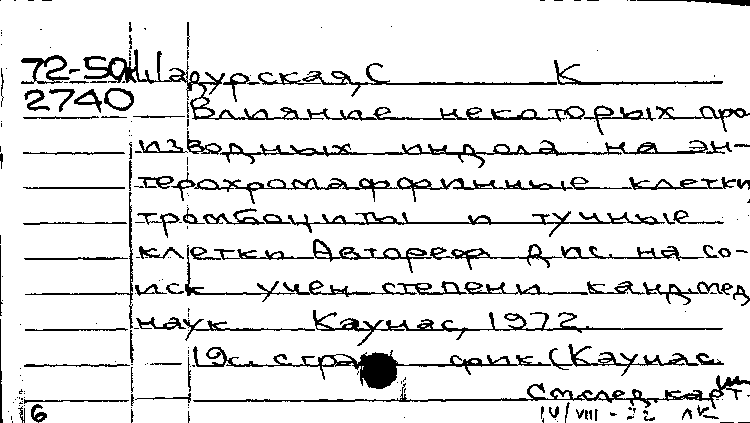 72-50
2740
С К
Влияние некоторых про
изводных индола на эн-
терохромаффинные клетки
тромбоциты и тучные
клетки. Автореф дис. на со-
иск учен. степени канд.мед
наук Каунас, 1972.
19с. с граф (Каунас.
См.след.карт.
6 ЛК